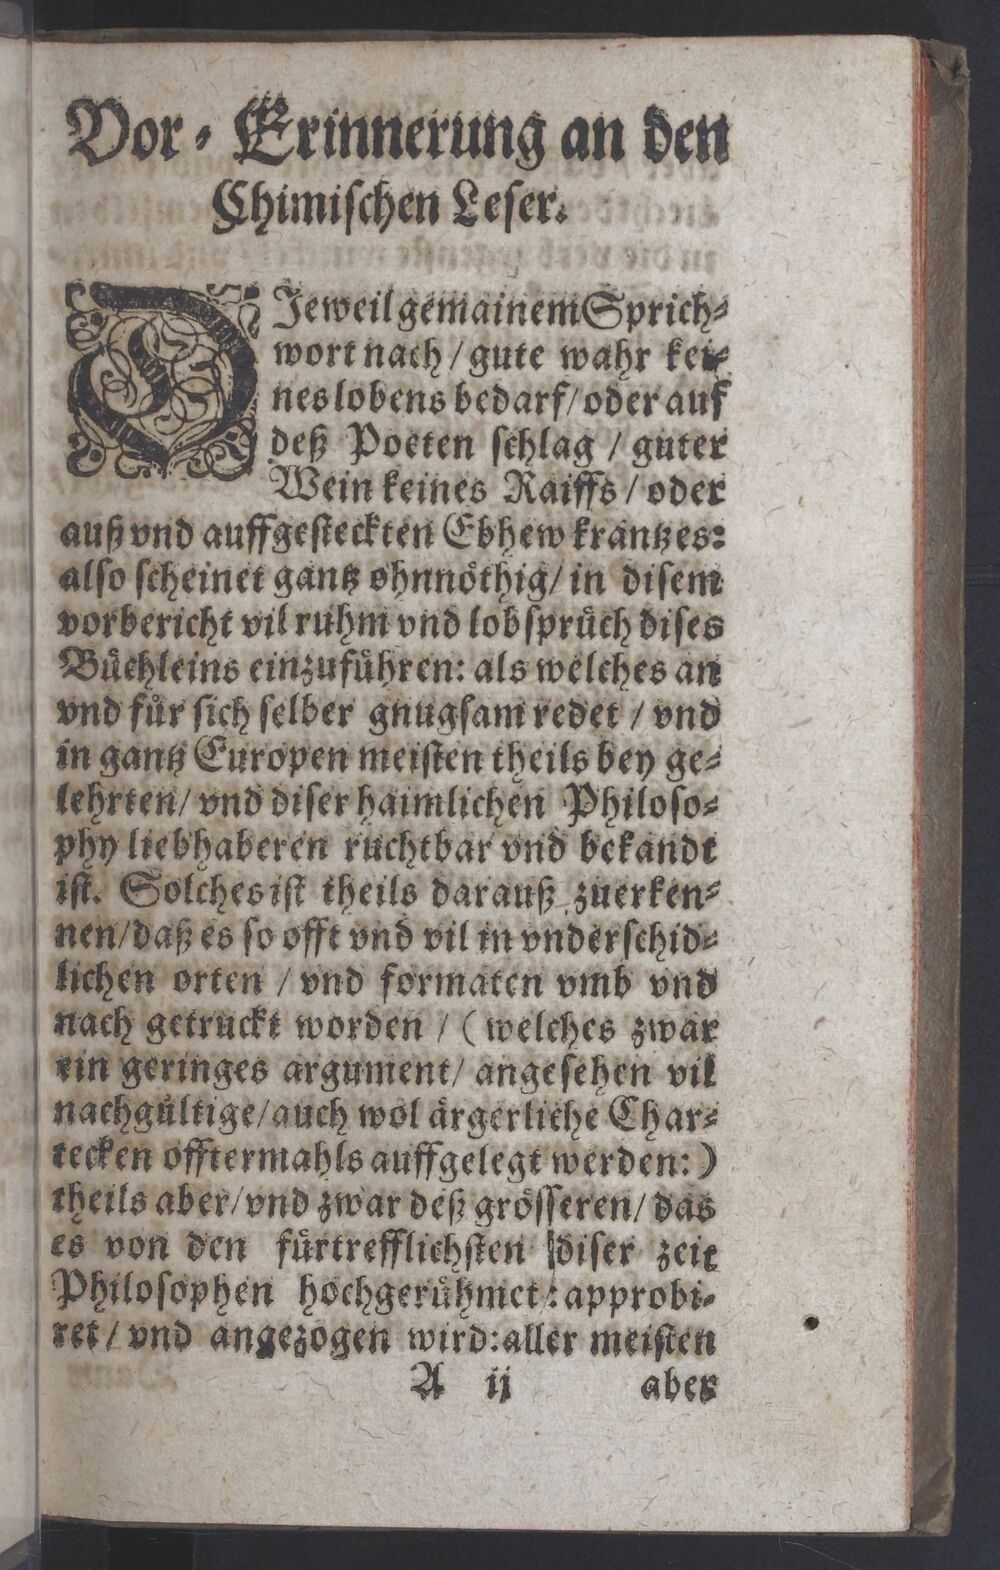 Vor-Erinnerung an den
Chimischen Leser.
DJeweil gemainem Sprich-
wort nach / gute wahr kei-
nes lobens bedarf / oder auf
deß Poeten schlag / guter
Wein keines Raiffs / oder
auß vnd auffgesteckten Ebhew krantzes:
also scheinet gantz ohnnöthig / in disem
vorbericht vil ruhm vnd lobsprüch dises
Büchleins einzuführen: als welches an
vnd für sich selber gnugsam redet / vnd
in gantz Europen meisten theils bey ge-
lehrten / vnd diser haimlichen Philoso-
phy liebhaberen ruchtbar vnd bekandt
ist. Solches ist theils darauß zuerken-
nen / daß es so offt vnd vil in vnderschid-
lichen orten / vnd formaten vmb vnd
nach getruckt worden / ( welches zwar
ein geringes argument / angesehen vil
nachgültige / auch wol ärgerliche Char-
tecken offtermahls auffgelegt werden: )
theils aber / vnd zwar deß grösseren / das
es von den fürtrefflichsten diser zeit
Philosophen hochgerühmet / approbi-
ret / vnd angezogen wird: aller meisten
A ij aber